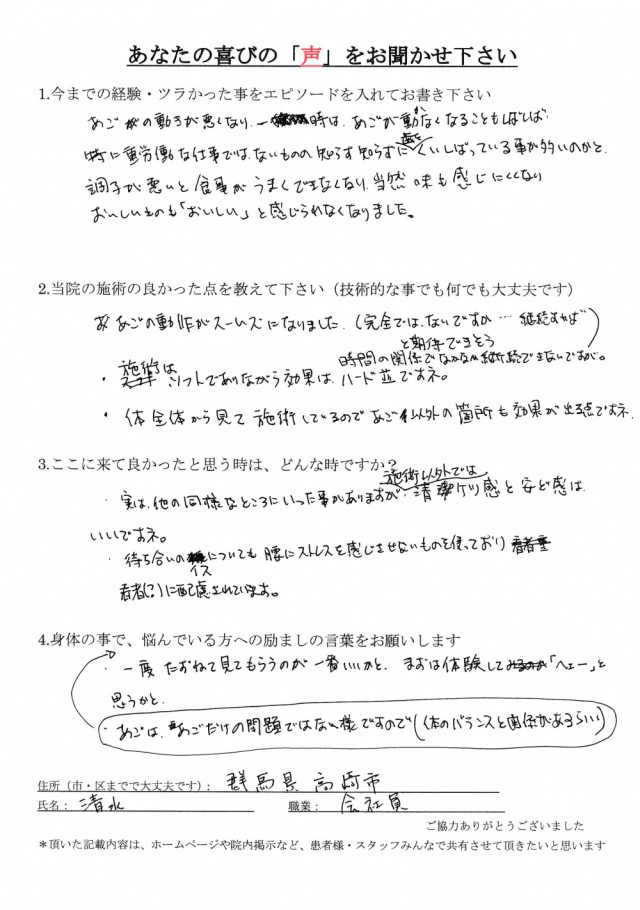 あなたの喜びの「声」をお聞かせ下さい
1.今までの経験・ツラかった事をエピソードを入れてお書き下さい
あごの動きが悪くなり、時は、あごが動かなくなることもしばしば
特に重労働な仕事ではないものの知らず知らずに歯をくいしばっている事が多いのかと、
調子が悪いと食事がうまくできなくなり、当然味も感じにくくなり
おいしいものも「おいしい」と感じられなくなりました。
2.当院の施術の良かった点を教えて下さい（技術的な事でも何でも大丈夫です）
あごの動作がスムーズになりました。（完全では、ないですが…継続すれば
と期待できそう
時間の関係でなかなか継続できないですが。）
・施術はソフトでありながら効果は、ハード並ですネ。
・体全体から見て施術しているのであご以外の箇所も効果が出る点ですネ
3.ここに来て良かったと思う時は、どんな時ですか？
施術以外では
・実は、他の同様なところにいった事がありますが、清潔感と安ど感は
いいですネ。
・待ち合いのイスについても腰にストレスを感じさせないものを使っており
患者(?)に配慮されています。
4.身体の事で、悩んでいる方への励ましの言葉をお願いします
・一度たずねて見てもらうのが一番いいかと、まずは体験して「ヘェー」と
思うかと、
・あごは、あごだけの問題ではない様ですので（体のバランスと関係があるらしい）
住所（市・区までで大丈夫です）： 群馬県高崎市
氏名： 清水 職業： 会社員
ご協力ありがとうございました
＊頂いた記載内容は、ホームページや院内掲示など、患者様・スタッフみんなで共有させて頂きたいと思います